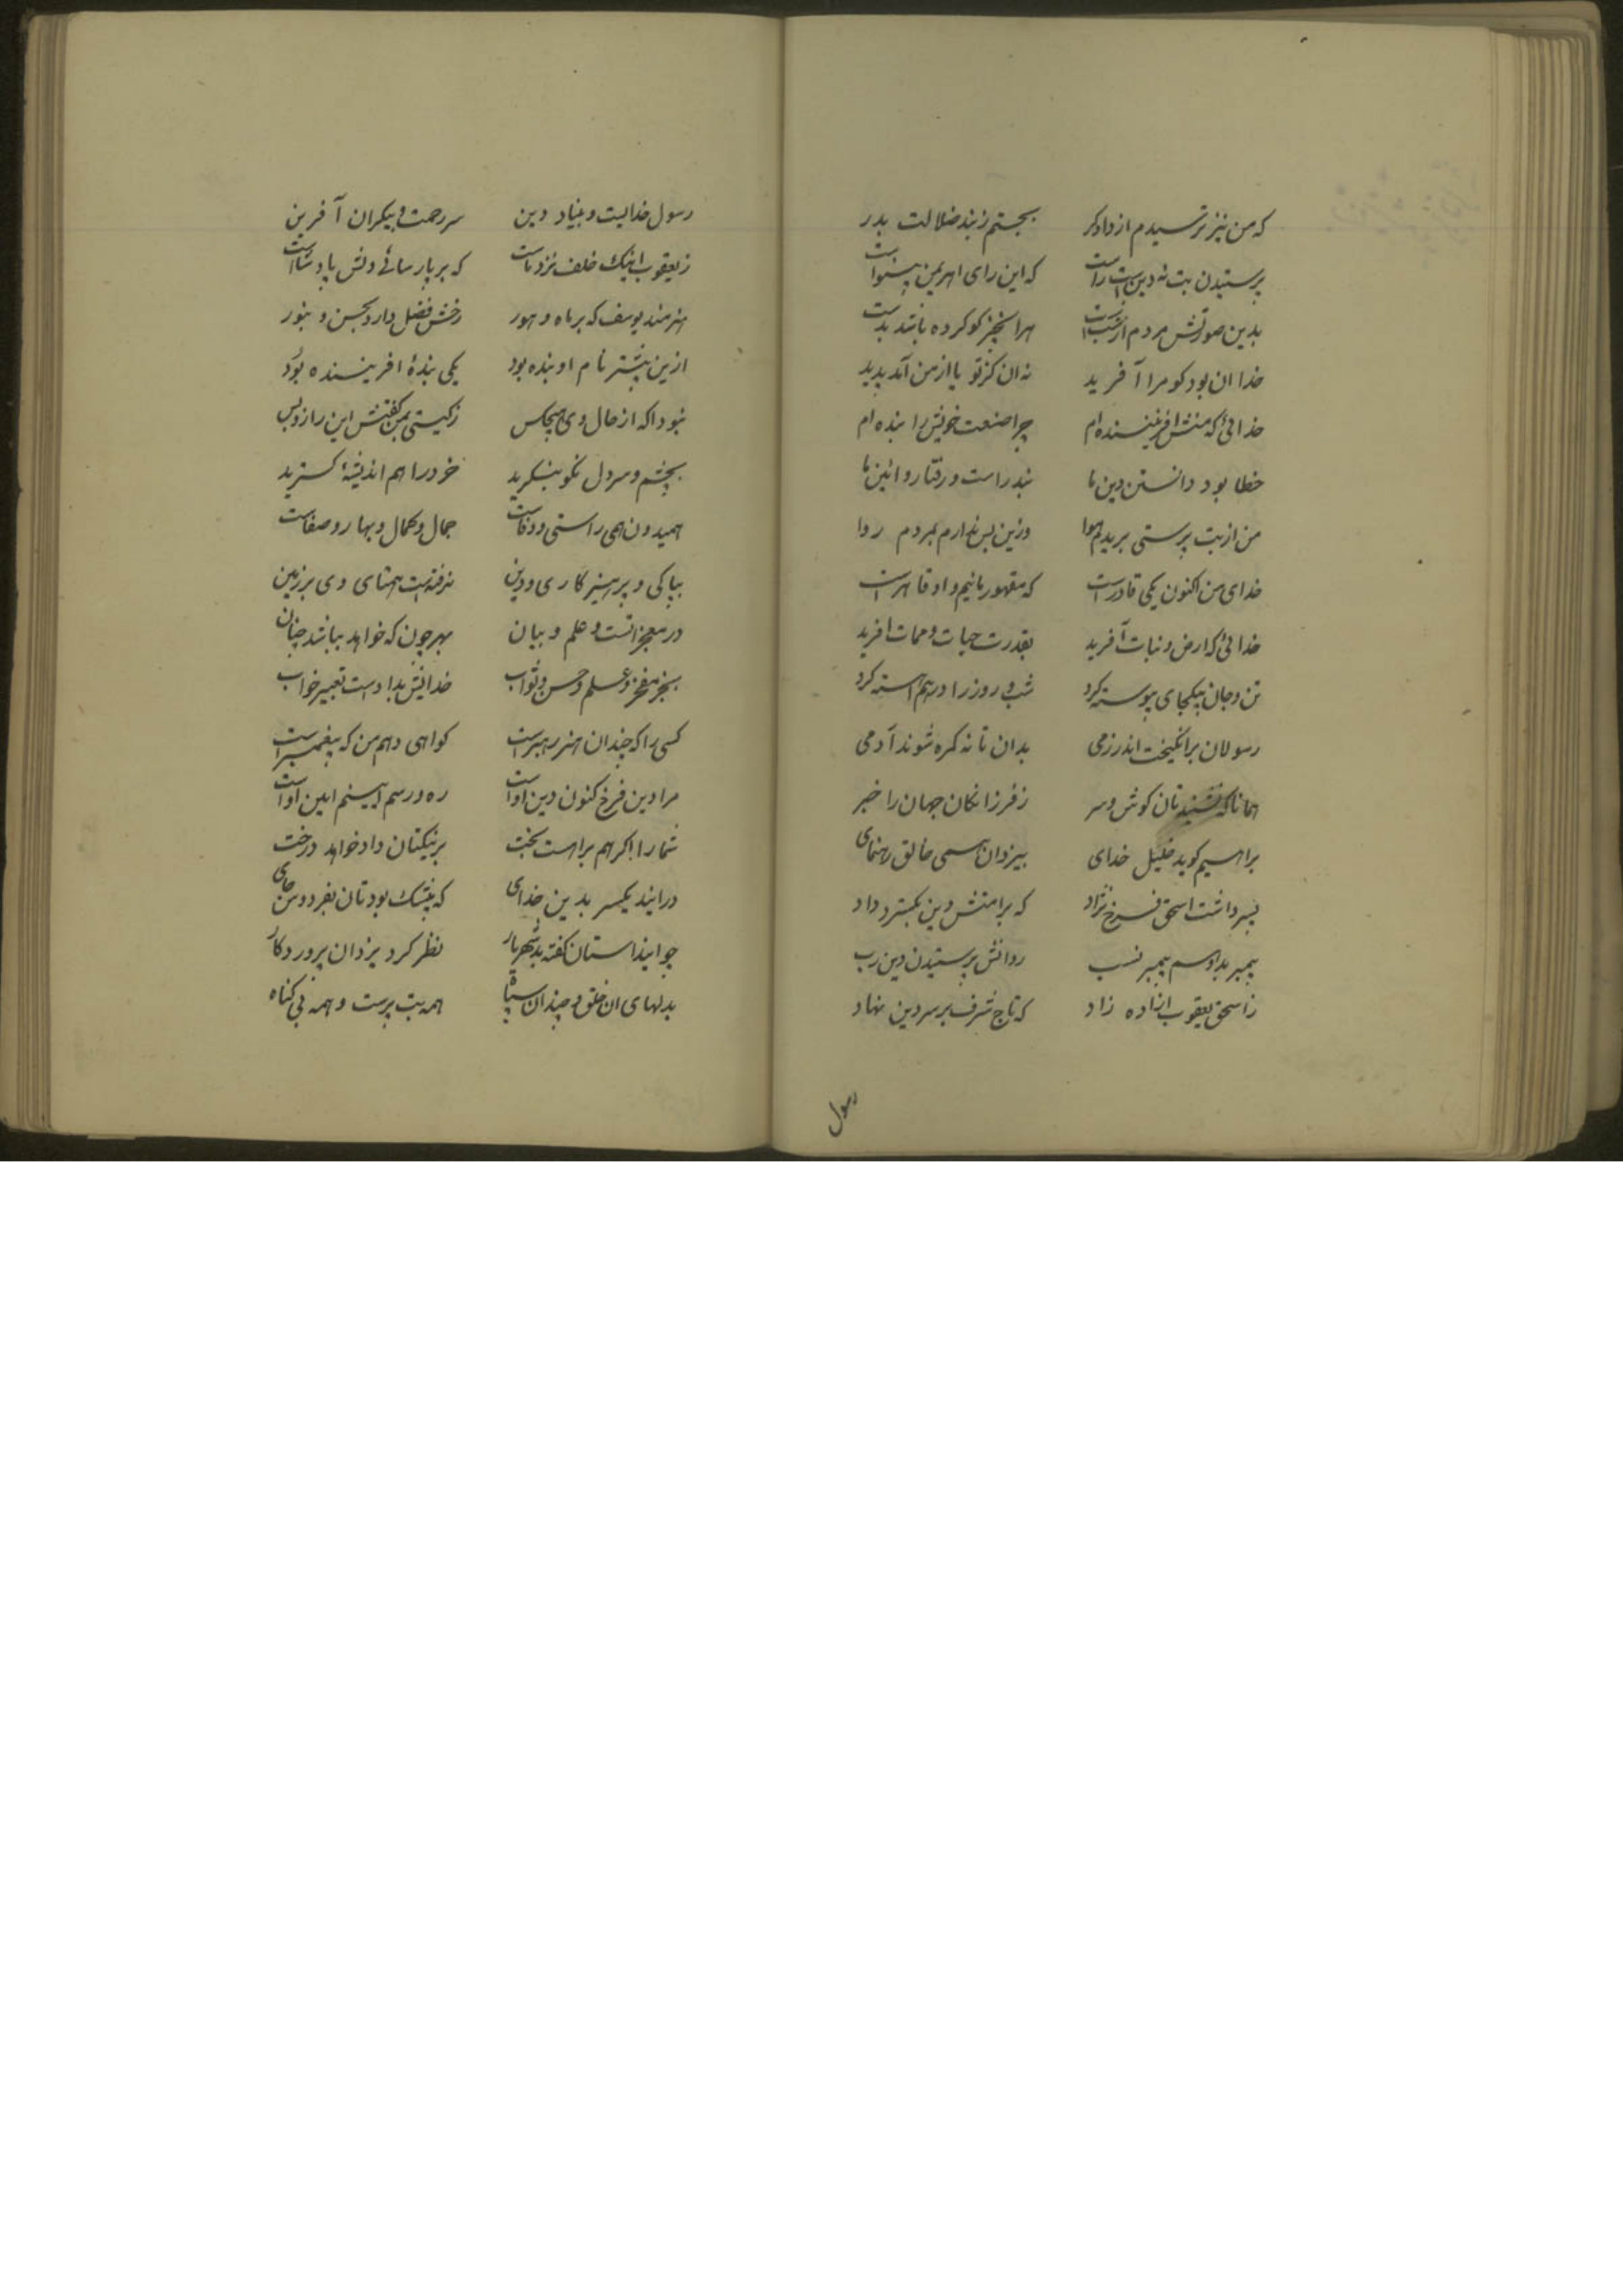 که من نیز ترسیدم از دادکر بجستم ز بند ضلالت بدر
پرستیدن بت نه دینست راست که این رای اهریمن پسنواست
بدین صورتش مردم ار هرانچیز کو کرده باشد بدست
خدا ان بود کو مرا آفرید نه ان کز تو یا از من آمد پدید
خدائی که منش افریننده ام چرا صنعت خویش را بنده ام
خطا بود دانستن دین ما نبد راست رفتار و ائین ما
من از بت پرستی بریدم هوا وزین بس ندارم بمردم روا
خدای من اکنون یکی قادرست که مقهور مائیم و او قاهرست
خدائی که ارض و نبات آفرید بقدرت حیات و ممات افرید
تن و جان بیکجای پیوسته کرد شب و روز را در هم اهسته کرد
رسولان برانکیخت اندر زمی بدان تا نه کمره شوند آدمی
همانا که نشنیدتان کوش و سر ز فرزانکان جهان را خبر
براهیم کوید خلیل خدای بیزدان همی خالق رهنمای
پسر داشت اسحق فرخ نژاد که بر امتش دین بکسترد داد
پیمبر بد او هم پیمبر نسب روانش پرستیدن دین رب
ز اسحق یعقوب ازاده زاد که تاج شرف بر سر دین نهاد
رسول
رسول خدایست و بنیاد دین سر رحمت و بیکران آفرین
ز یعقوب اینک خلف نزد ماست که بر پارسائی دلش پادشاست
هنرمند یوسف که بر ماه و هور رخش فضل دارد بحسن و بنور
ازین پیشتر نام او بنده بود یکی بندهٔ افریننده بود
نبود اکه از حال وی هیچکس ز کیتی بمن کفتش این راز و بس
بچشم و سر دل نکو بنکرید خرد را هم اندیشهٔ کسترید
همیدون همی راستی و وفاست جمال و کمال و بها و صفاست
بپاکی و پرهیزکاری و دین نرفتست همتای وی بر زمین
در معجزاتست و علم و بیان بهر چون که خواهد بباشد چنان
بجز مفخر و علم و حسن و ثواب خدایش بدادست تعبیر خواب
کسی را که چندان هنر رهبرست کواهی دهم من که پیغمبرست
مرا دین فرخ کنون دین اوست ره و رسم ایینم ایین اوست
شما را اکر هم براهست بخت بر نیکتان داد خواهد درخت
درائید یکسر بدین خدای که بیشک بودتان بفردوس جای
چو این داستان کفته بد شهریار نظر کرد یزدان پروردکار
بدلهای ان خلق و چندان سپاه همه بت پرست و همه بی کناه